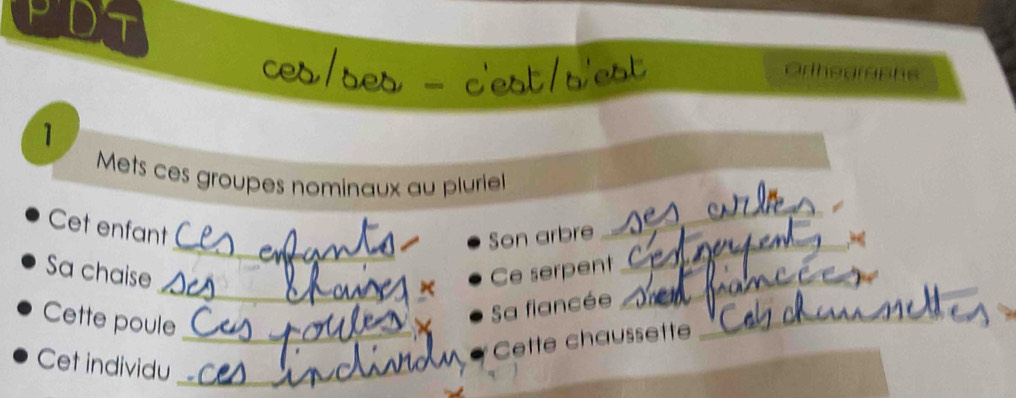 PDT
ces/ses - c'est/s'est
orthographe
1
Mets ces groupes nominaux au pluriel
Cet enfant ces enfants
Sa chaise ses chaises
Cette poule Ces poules
Cet individu ces individu
Son arbre ses
Ce serpent c'est serpents
Sa fiancée fiancées
Cette chaussette